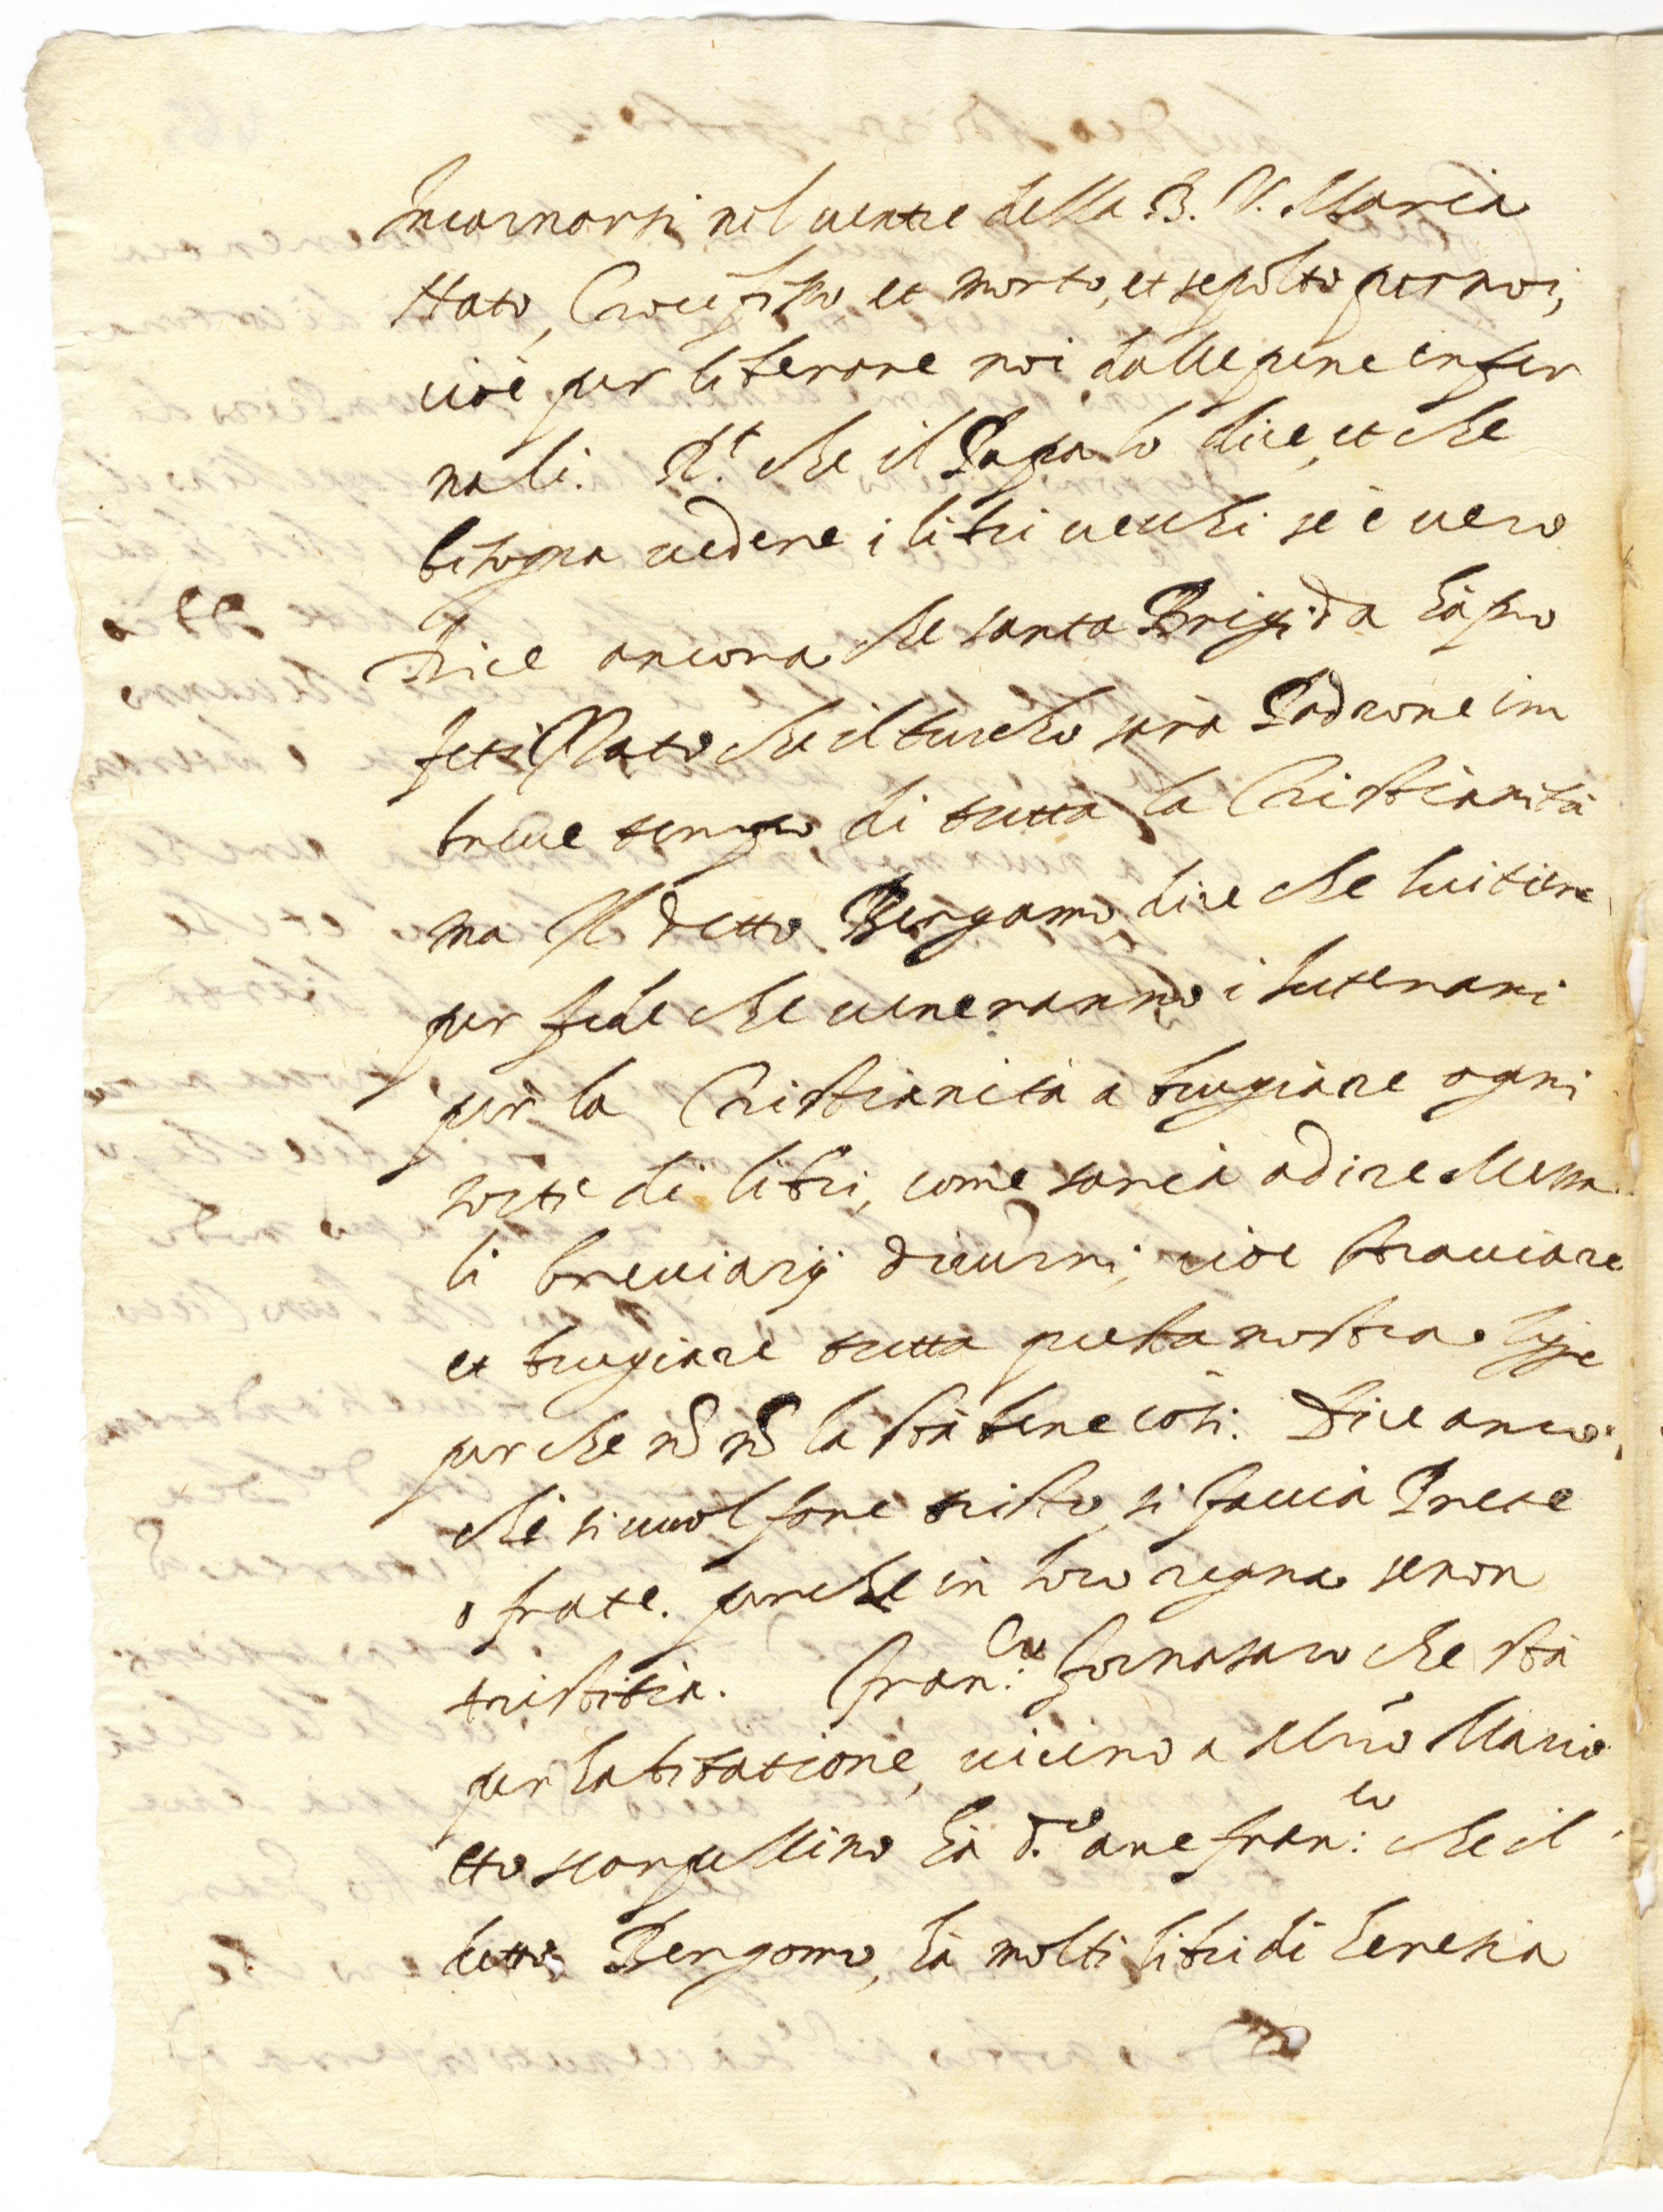 Incarnarsi nel uentre della B. V. Maria
Nato, Crocefisso, et morto, et sepolto per noi,
cioè per liberare noi dalle pene infer
nali. R.t che il Papa lo dice, et che
bisogna uedere i libri uecchi se è uero
Dice ancora che santa Brigida hà pro
fetizzato che il turcho sarà Padrone im
breue tempo di tutta la Cristianità
ma Il detto Bergamo dice che lui tiene
per fede che ueneranno i luterani
per la Cristianità a brugiare ogni
sorte di libri, come saria a dire Messa
li breuiarij diurni, cioe stracciare
et brugiare tutta questa nostra legge
perche nō nō la stà bene così. Dice anco.
che si uuol fare tristo, si faccia Prete
o frate. perche in loro regna senon
tristitia. Fran.co fornasaro che stà
per habitatione, uicino a Mrō Mario
tto scarpellino hà d.o a ne fran.co che il
detto Bergomo, hà molti libri di heresia